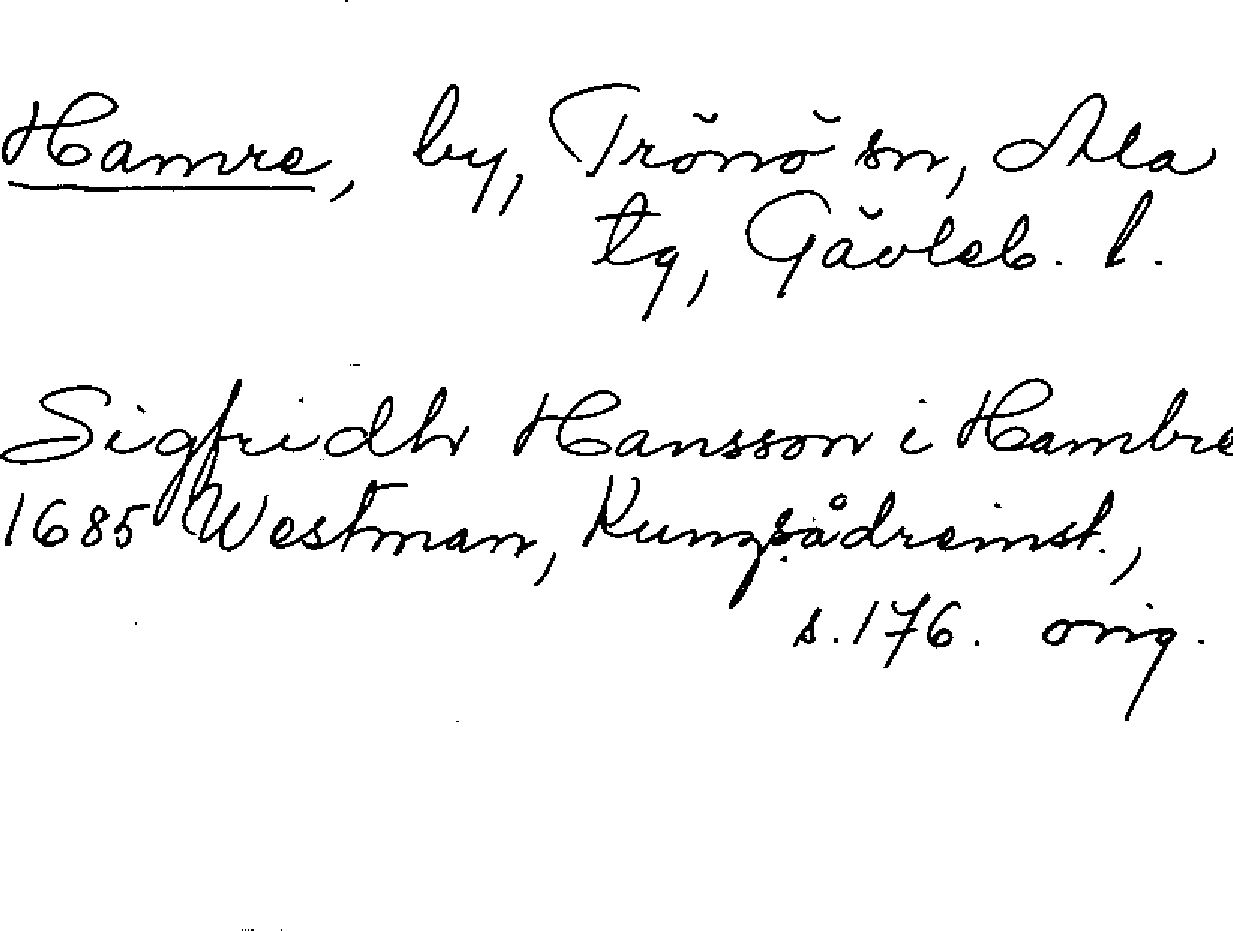 Hamre, by, Trönö sn, Ala
tg, Gävleb. l.
Sigfridh Hansson i Hambre
1685 Westman, Kungsådreinst.,
s. 176. orig.